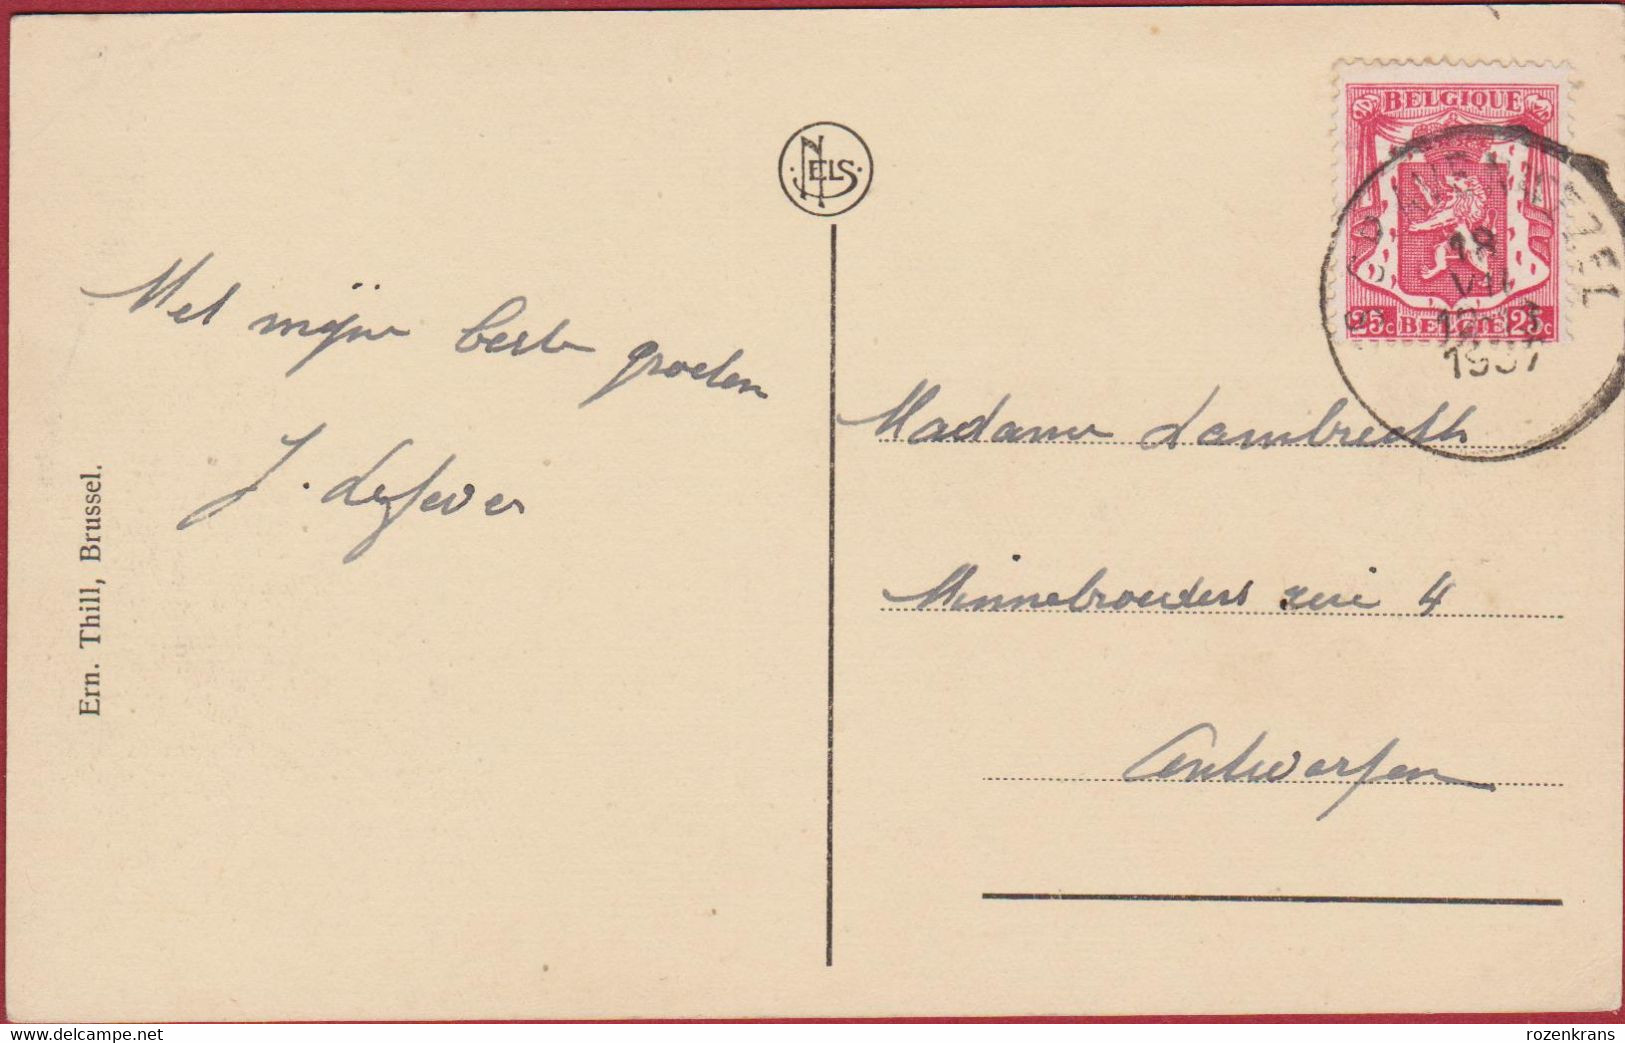 NELS
BELGIQUE
18
VII
1937
25c BELGIE 25c
Met mijne beste groeten
J. Lefever
Madame Lambrechts
Minnebroeders rui 4
Antwerpen
Ern. Thill, Brussel.
https://www.delcampe.net
rozenkrans